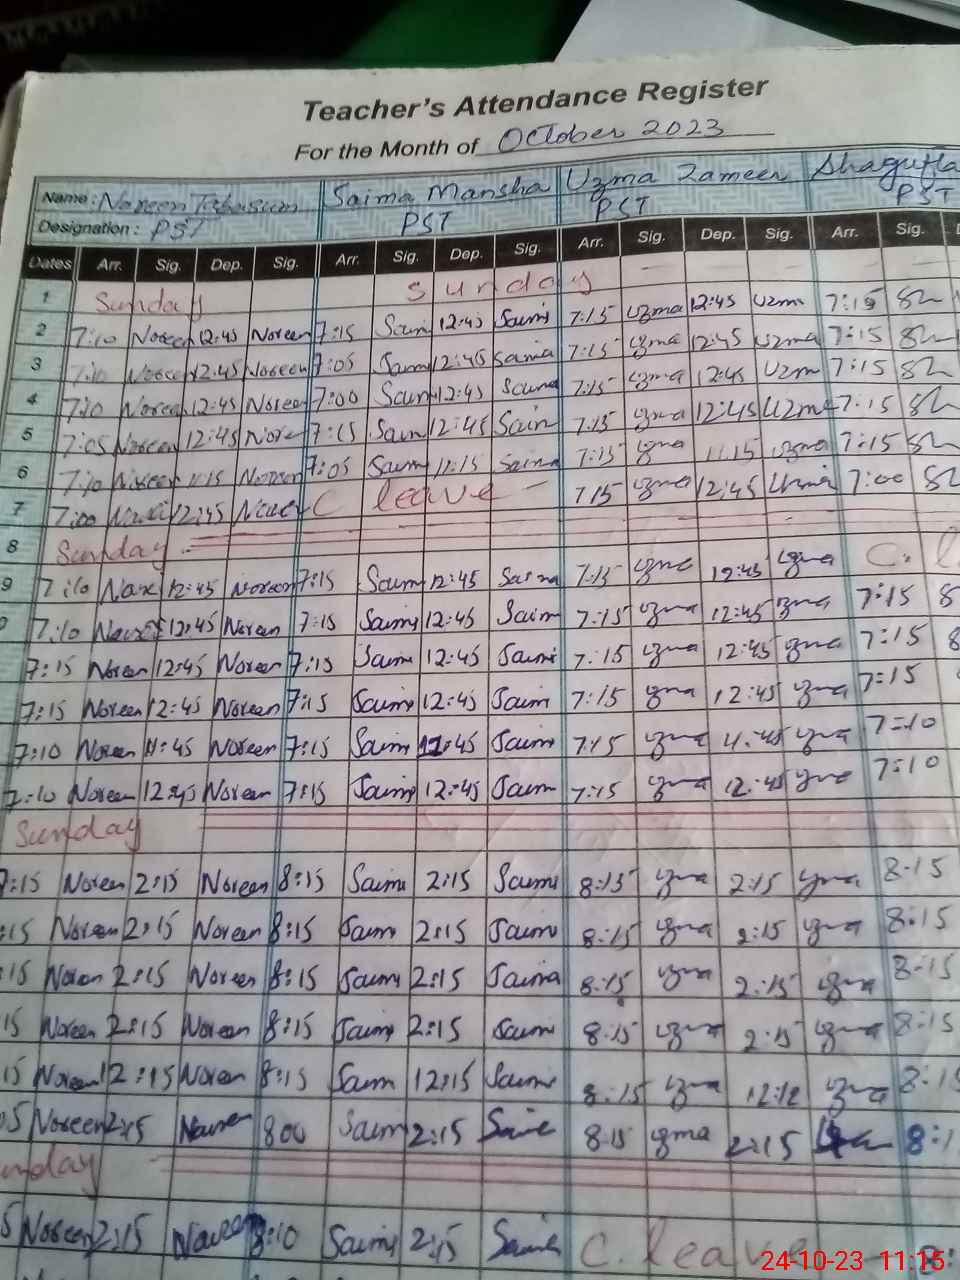 Teacher's Attendance Register
For the Month of October 2023
Name: Noreen Tabasum Saima Mansha Uzma Zameer Shagufta
Designation: PST PST PST PST
Dates Arr. Sig. Dep. Sig. Arr. Sig. Dep. Sig. Arr. Sig. Dep. Sig. Arr. Sig.
1 Sunday Sunday
2 7:10 Noreen 12:45 Noreen 7:15 Saim 12:45 Saimi 7:15 Uzma 12:45 Uzm 7:15
3 7:10 Noreen 12:45 Noreen 7:05 Saim 12:45 Saima 7:15 Uzma 12:45 Uzma 7:15
4 7:10 Noreen 12:45 Noreen 7:00 Saim 12:45 Saima 7:15 Uzma 12:45 Uzm 7:15
5 7:05 Noreen 12:45 Nore 7:15 Saim 12:45 Saim 7:15 Uzma 12:45 Uzma 7:15
6 7:10 Noreen 11:15 Noreen 7:05 Saim 11:15 Saima 7:15 Uzma 11:15 Uzma 7:15
7 7:00 12:45 C leave 7:15 Uzma 12:45 Uzma 7:00
8 Sunday
9 7:10 12:45 Noreen 7:15 Saim 12:45 Saima 7:15 Uzma 12:45 Uzma C. l
7:10 12:45 Noreen 7:15 Saimi 12:45 Saim 7:15 Uzma 12:45 Uzma 7:15
7:15 Noreen 12:45 Noreen 7:15 Saimi 12:45 Saimi 7:15 Uzma 12:45 Uzma 7:15
7:15 Noreen 12:45 Noreen 7:15 Saimi 12:45 Saim 7:15 Uzma 12:45 Uzma 7:15
7:10 Noreen 11:45 Noreen 7:15 Saimi :45 Saim 7:15 Uzma Uzma 7:10
7:10 Noreen 12:45 Noreen 7:15 Saimi 12:45 Saim 7:15 Uzma 12:45 Uzma 7:10
Sunday
:15 Noreen 2:15 Noreen 8:15 Saimi 2:15 Saimi 8:15 Uzma 2:15 Uzma 8:15
:15 Noreen 2:15 Noreen 8:15 Saim 2:15 Saim 8:15 Uzma 2:15 Uzma 8:15
15 Noreen 2:15 Noreen 8:15 Saimi 2:15 Saima 8:15 Uzma 2:15 Uzma 8:15
15 Noreen 2:15 Noreen 8:15 Saimi 2:15 Saimi 8:15 Uzma 2:15 Uzma 8:15
15 Noreen 12:15 Noreen 8:15 Saim 12:15 Saimi 8:15 Uzma 12:12 Uzma 8:15
05 Noreen 2:15 Noreen 8:00 Saim 2:15 8:15 Uzma 2:15 8:1
nday
5 Noreen 2:15 8:10 Saimi 2:15 C. leave 8:
24-10-23 11:15